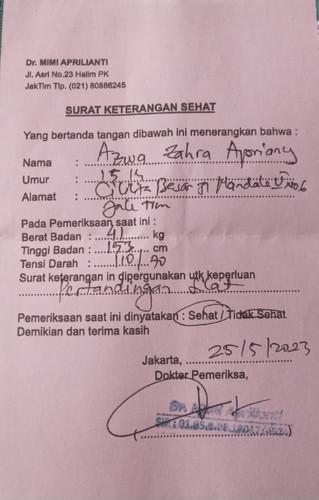 Dr. MIMI APRILIANTI
Jl. Asri No.23 Halim PK
JakTim Tlp. (021) 80886245
SURAT KETERANGAN SEHAT
Yang bertanda tangan dibawah ini menerangkan bahwa :
Nama : Azwa Zahra Apriany
Umur : 15 th
Alamat : Cililita Besar jl Mandala V no 6
Jak Tim
Pada Pemeriksaan saat ini :
Berat Badan : 41 kg
Tinggi Badan : 153 cm
Tensi Darah : 110/90
Surat keterangan in dipergunakan utk keperluan
Pertandingan Silat
Pemeriksaan saat ini dinyatakan : Sehat / Tidak Sehat
Demikian dan terima kasih
Jakarta, 25/5/2023
Dokter Pemeriksa,
Dr. Mimi Aprilianti